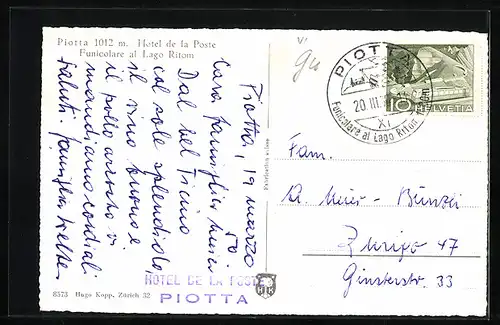 Piotta 1012 m. Hotel de la Poste
Funicolare al Lago Ritom
Piotta, 19 marzo
50.
Cara famiglia
Dal bel Ticino
col sole splendido,
il vino buono e
il pollo arrosto vi
mandiamo cordiali
saluti. famiglia
HOTEL DE LA POSTE
PIOTTA
8573 Hugo Kopp, Zürich 32
HK
PIOTTA
20. III.
XI
Funicolare al Lago Ritom
10
HELVETIA
Fam.
A. Meier - Bünzli
Zurigo 47
Ginsterstr. 33